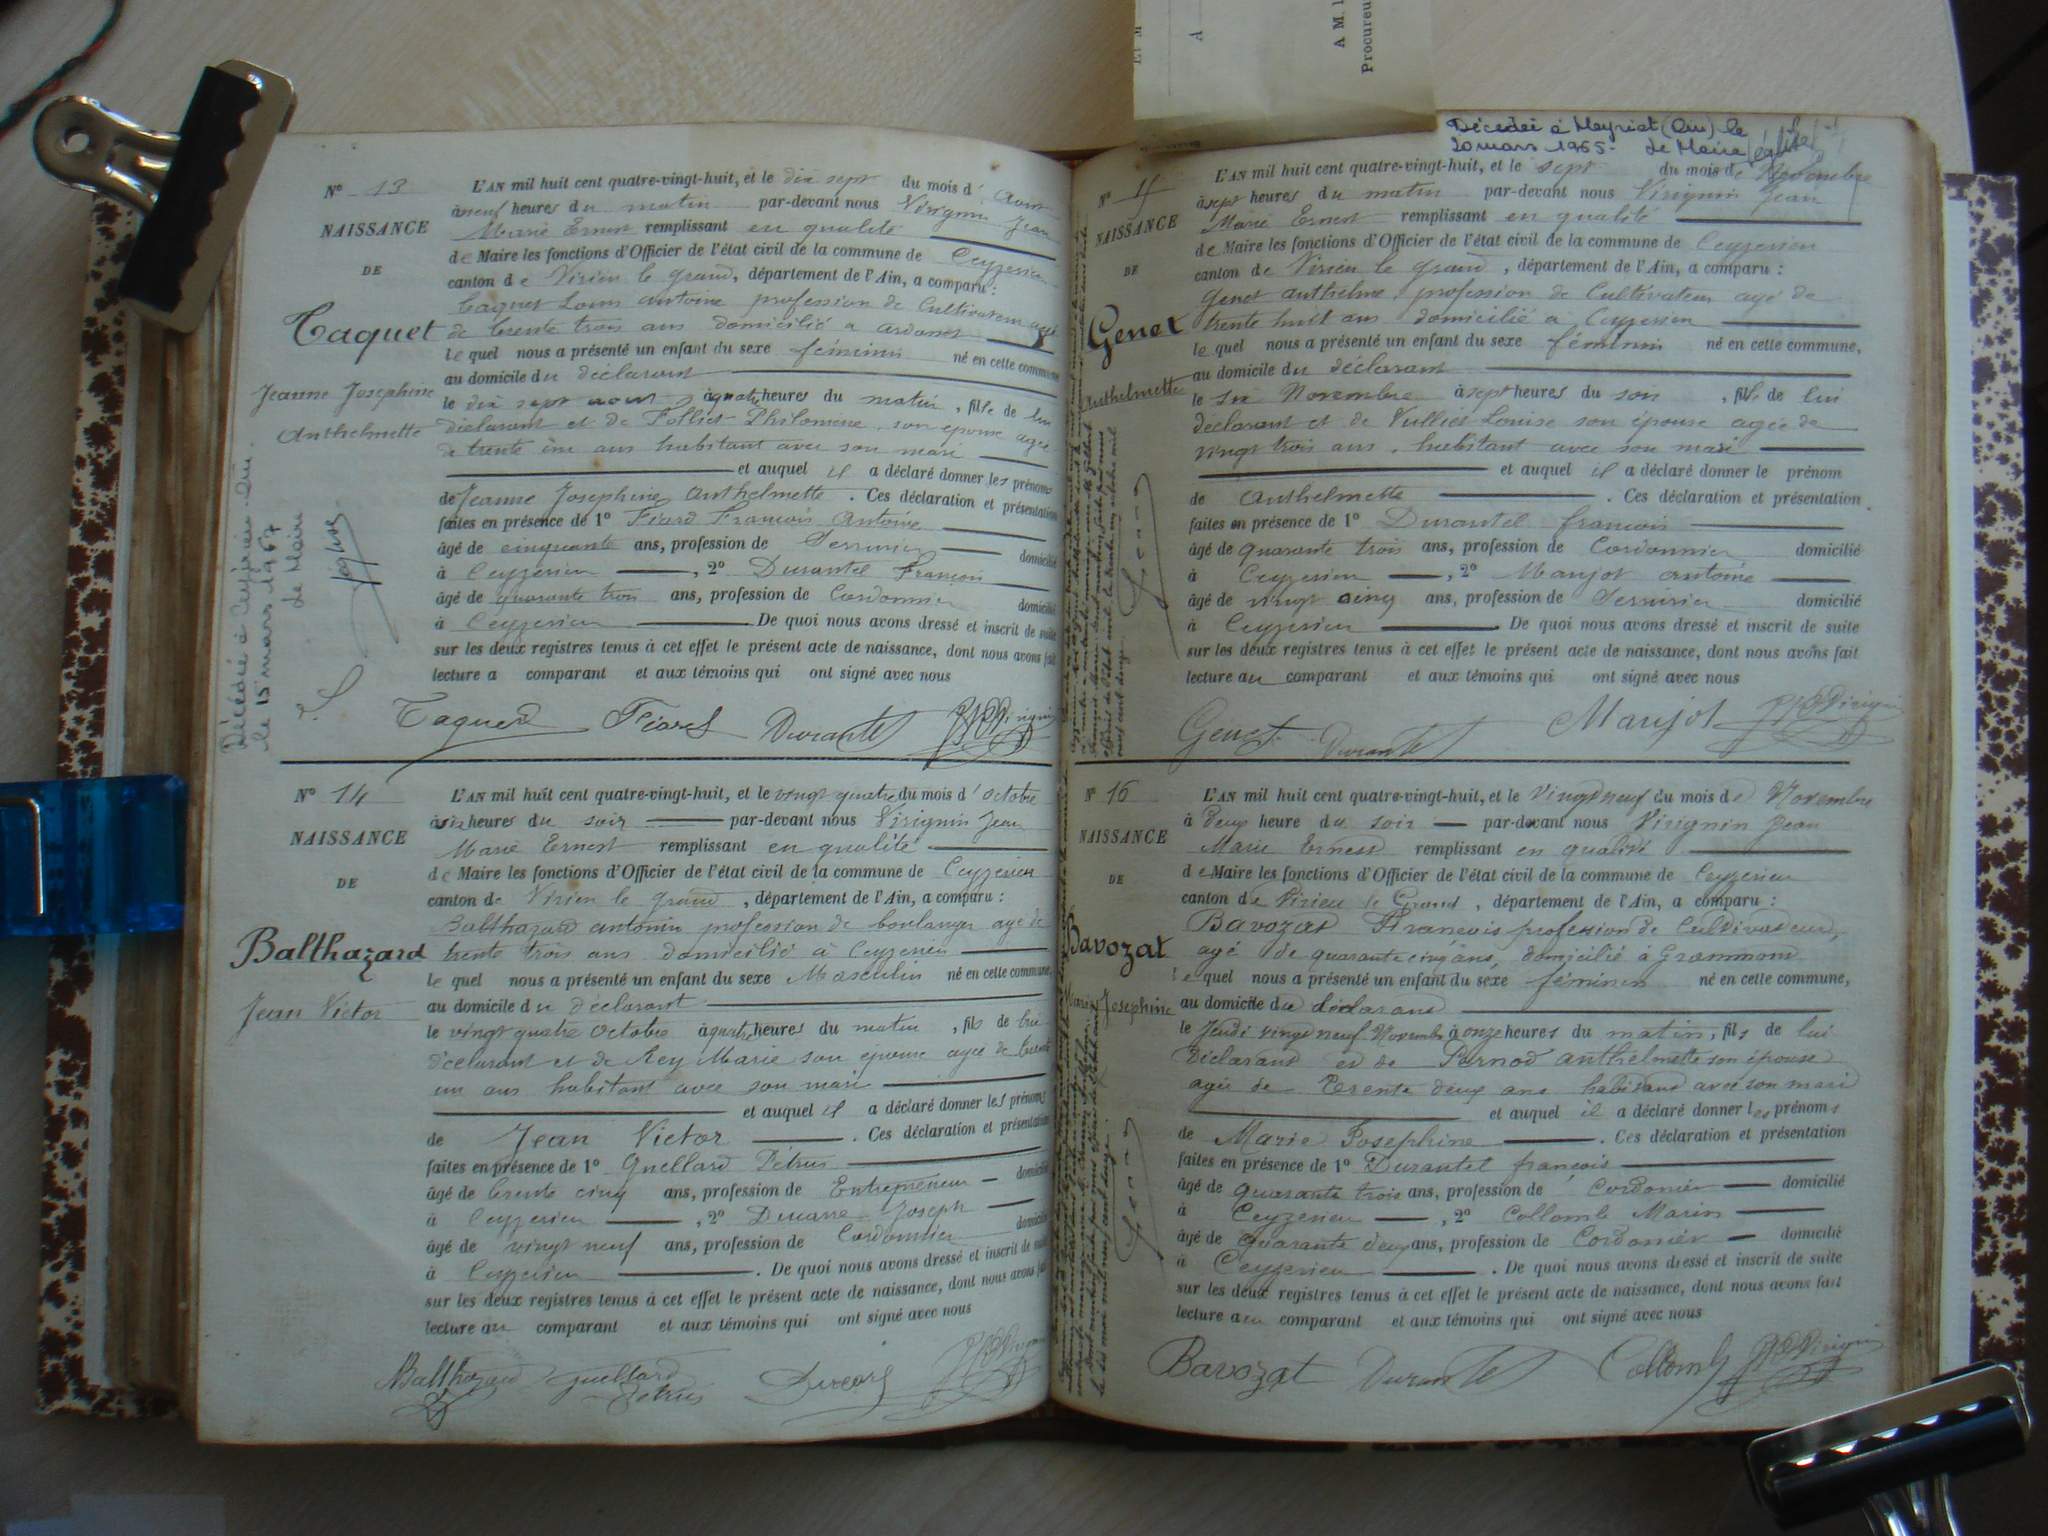 ET M
A
A M
Procureu
N° 13
NAISSANCE
DE
Taquet
Jeanne Josephine
Anthelmette
Décédée à Ceyzérieu - Ain
le 15 mars 1967
Le Maire
L'AN mil huit cent quatre-vingt-huit, et le dix sept du mois d' Aout
à neuf heures du matin par-devant nous Virignin Jean
Marie Ernest remplissant en qualité
de Maire les fonctions d'Officier de l'état civil de la commune de Ceyzerieu
canton de Virieu le grand, département de l'Ain, a comparu :
Taquet Louis antoine profession de Cultivateur agé
de trente trois ans domicilié a ardosset
le quel nous a présenté un enfant du sexe féminin né en cette commune
au domicile du déclarant
le dix sept aout à quatre heures du matin, fille de lui
déclarant et de Folliet Philomène son épouse agée
de trente un ans habitant avec son mari
et auquel il a déclaré donner les prénoms
de Jeanne Josephine Anthelmette. Ces déclaration et présentation
faites en présence de 1° François Antoine
âgé de cinquante ans, profession de Serrurier domicilié
à Ceyzerieu, 2° Durantel François
âgé de quarante trois ans, profession de Cordonnier domicilié
à Ceyzerieu. De quoi nous avons dressé et inscrit de suite
sur les deux registres tenus à cet effet le présent acte de naissance, dont nous avons fait
lecture a comparant et aux témoins qui ont signé avec nous
Taquet Durantel
N° 14
NAISSANCE
DE
Balthazard
Jean Victor
L'AN mil huit cent quatre-vingt-huit, et le vingt quatre du mois d' octobre
à six heures du soir par-devant nous Virignin Jean
Marie Ernest remplissant en qualité
de Maire les fonctions d'Officier de l'état civil de la commune de Ceyzerieu
canton de Virieu le grand, département de l'Ain, a comparu :
Balthazard antonin profession de boulanger agé de
trente trois ans domicilié à Ceyzerieu
le quel nous a présenté un enfant du sexe Masculin né en cette commune,
au domicile du déclarant
le vingt quatre octobre à quatre heures du matin, fils de lui
déclarant et de Rey Marie son épouse agée de trente
un ans habitant avec son mari
et auquel il a déclaré donner les prénoms
de Jean Victor. Ces déclaration et présentation
faites en présence de 1° Guellard Pétrus
âgé de trente cinq ans, profession de Entrepreneur domicilié
à Ceyzerieu, 2° Joseph
âgé de vingt neuf ans, profession de Cordonnier domicilié
à Ceyzerieu. De quoi nous avons dressé et inscrit de suite
sur les deux registres tenus à cet effet le présent acte de naissance, dont nous avons fait
lecture au comparant et aux témoins qui ont signé avec nous
Balthazard Guellard Pétrus
Décédée à Meyriat (Ain) le
20 mars 1965. Le Maire
N°
NAISSANCE
DE
Genet
Anthelmette
L'AN mil huit cent quatre-vingt-huit, et le sept du mois de Novembre
à sept heures du matin par-devant nous Virignin Jean
Marie Ernest remplissant en qualité
de Maire les fonctions d'Officier de l'état civil de la commune de Ceyzerieu
canton de Virieu le grand, département de l'Ain, a comparu :
Genet anthelme, profession de Cultivateur agé de
trente huit ans domicilié à Ceyzerieu
le quel nous a présenté un enfant du sexe féminin né en cette commune,
au domicile du déclarant
le six Novembre à sept heures du soir, fille de lui
déclarant et de Vulliet Louise son épouse agée de
vingt trois ans, habitant avec son mari
et auquel il a déclaré donner le prénom
de Anthelmette. Ces déclaration et présentation
faites en présence de 1° Durantel françois
âgé de quarante trois ans, profession de Cordonnier domicilié
à Ceyzerieu, 2° Maujot antoine
âgé de vingt cinq ans, profession de Serrurier domicilié
à Ceyzerieu. De quoi nous avons dressé et inscrit de suite
sur les deux registres tenus à cet effet le présent acte de naissance, dont nous avons fait
lecture au comparant et aux témoins qui ont signé avec nous
Genet Durantel Maujot
N° 16
NAISSANCE
DE
Bavozat
Marie Josephine
L'AN mil huit cent quatre-vingt-huit, et le vingt neuf du mois de Novembre
à deux heure du soir par-devant nous Virignin Jean
Marie Ernest remplissant en qualité
de Maire les fonctions d'Officier de l'état civil de la commune de Ceyzerieu
canton de Virieu le Grand, département de l'Ain, a comparu :
Bavozat François profession de Cultivateur,
agé de quarante cinq ans, domicilié à Grammont
le quel nous a présenté un enfant du sexe féminin né en cette commune,
au domicile du déclarant
le Jeudi vingt neuf Novembre à onze heures du matin, fils de lui
déclarant et de Pernod anthelmette son épouse
agée de Trente deux ans habitant avec son mari
et auquel il a déclaré donner les prénoms
de Marie Josephine. Ces déclaration et présentation
faites en présence de 1° Durantel françois
âgé de quarante trois ans, profession de Cordonier domicilié
à Ceyzerieu, 2° Collomb Marin
âgé de quarante deux ans, profession de Cordonier domicilié
à Ceyzerieu. De quoi nous avons dressé et inscrit de suite
sur les deux registres tenus à cet effet le présent acte de naissance, dont nous avons fait
lecture au comparant et aux témoins qui ont signé avec nous
Bavozat Durantel Collomb